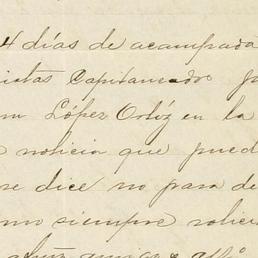 4 días de acampada
istas Capitaneado
López Ortíz en la
noticia que pued
se dice no para de
mo siempre solici